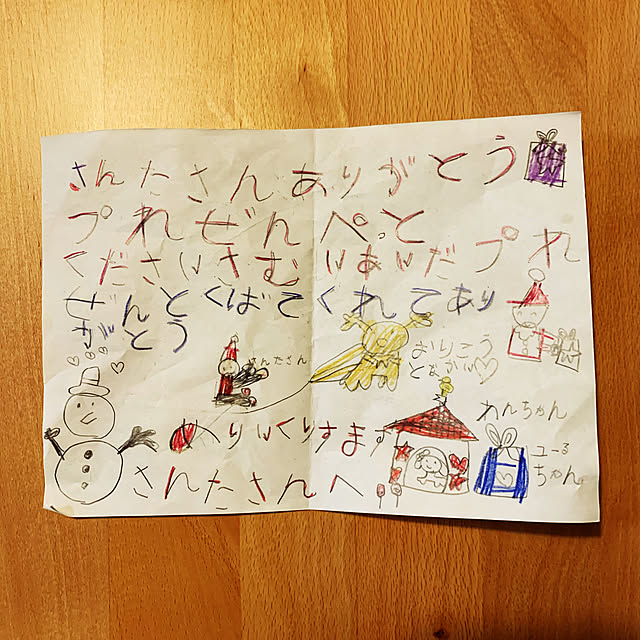 さんたさんありがとう
プれぜんぺっと
くださいさむいあいだプれ
ぜんとくばてくれてあり
がとう
さんたさん
おりこう
となかい
わんちゃん
ユーる
ちゃん
めりいくりすます
さんたさんへ